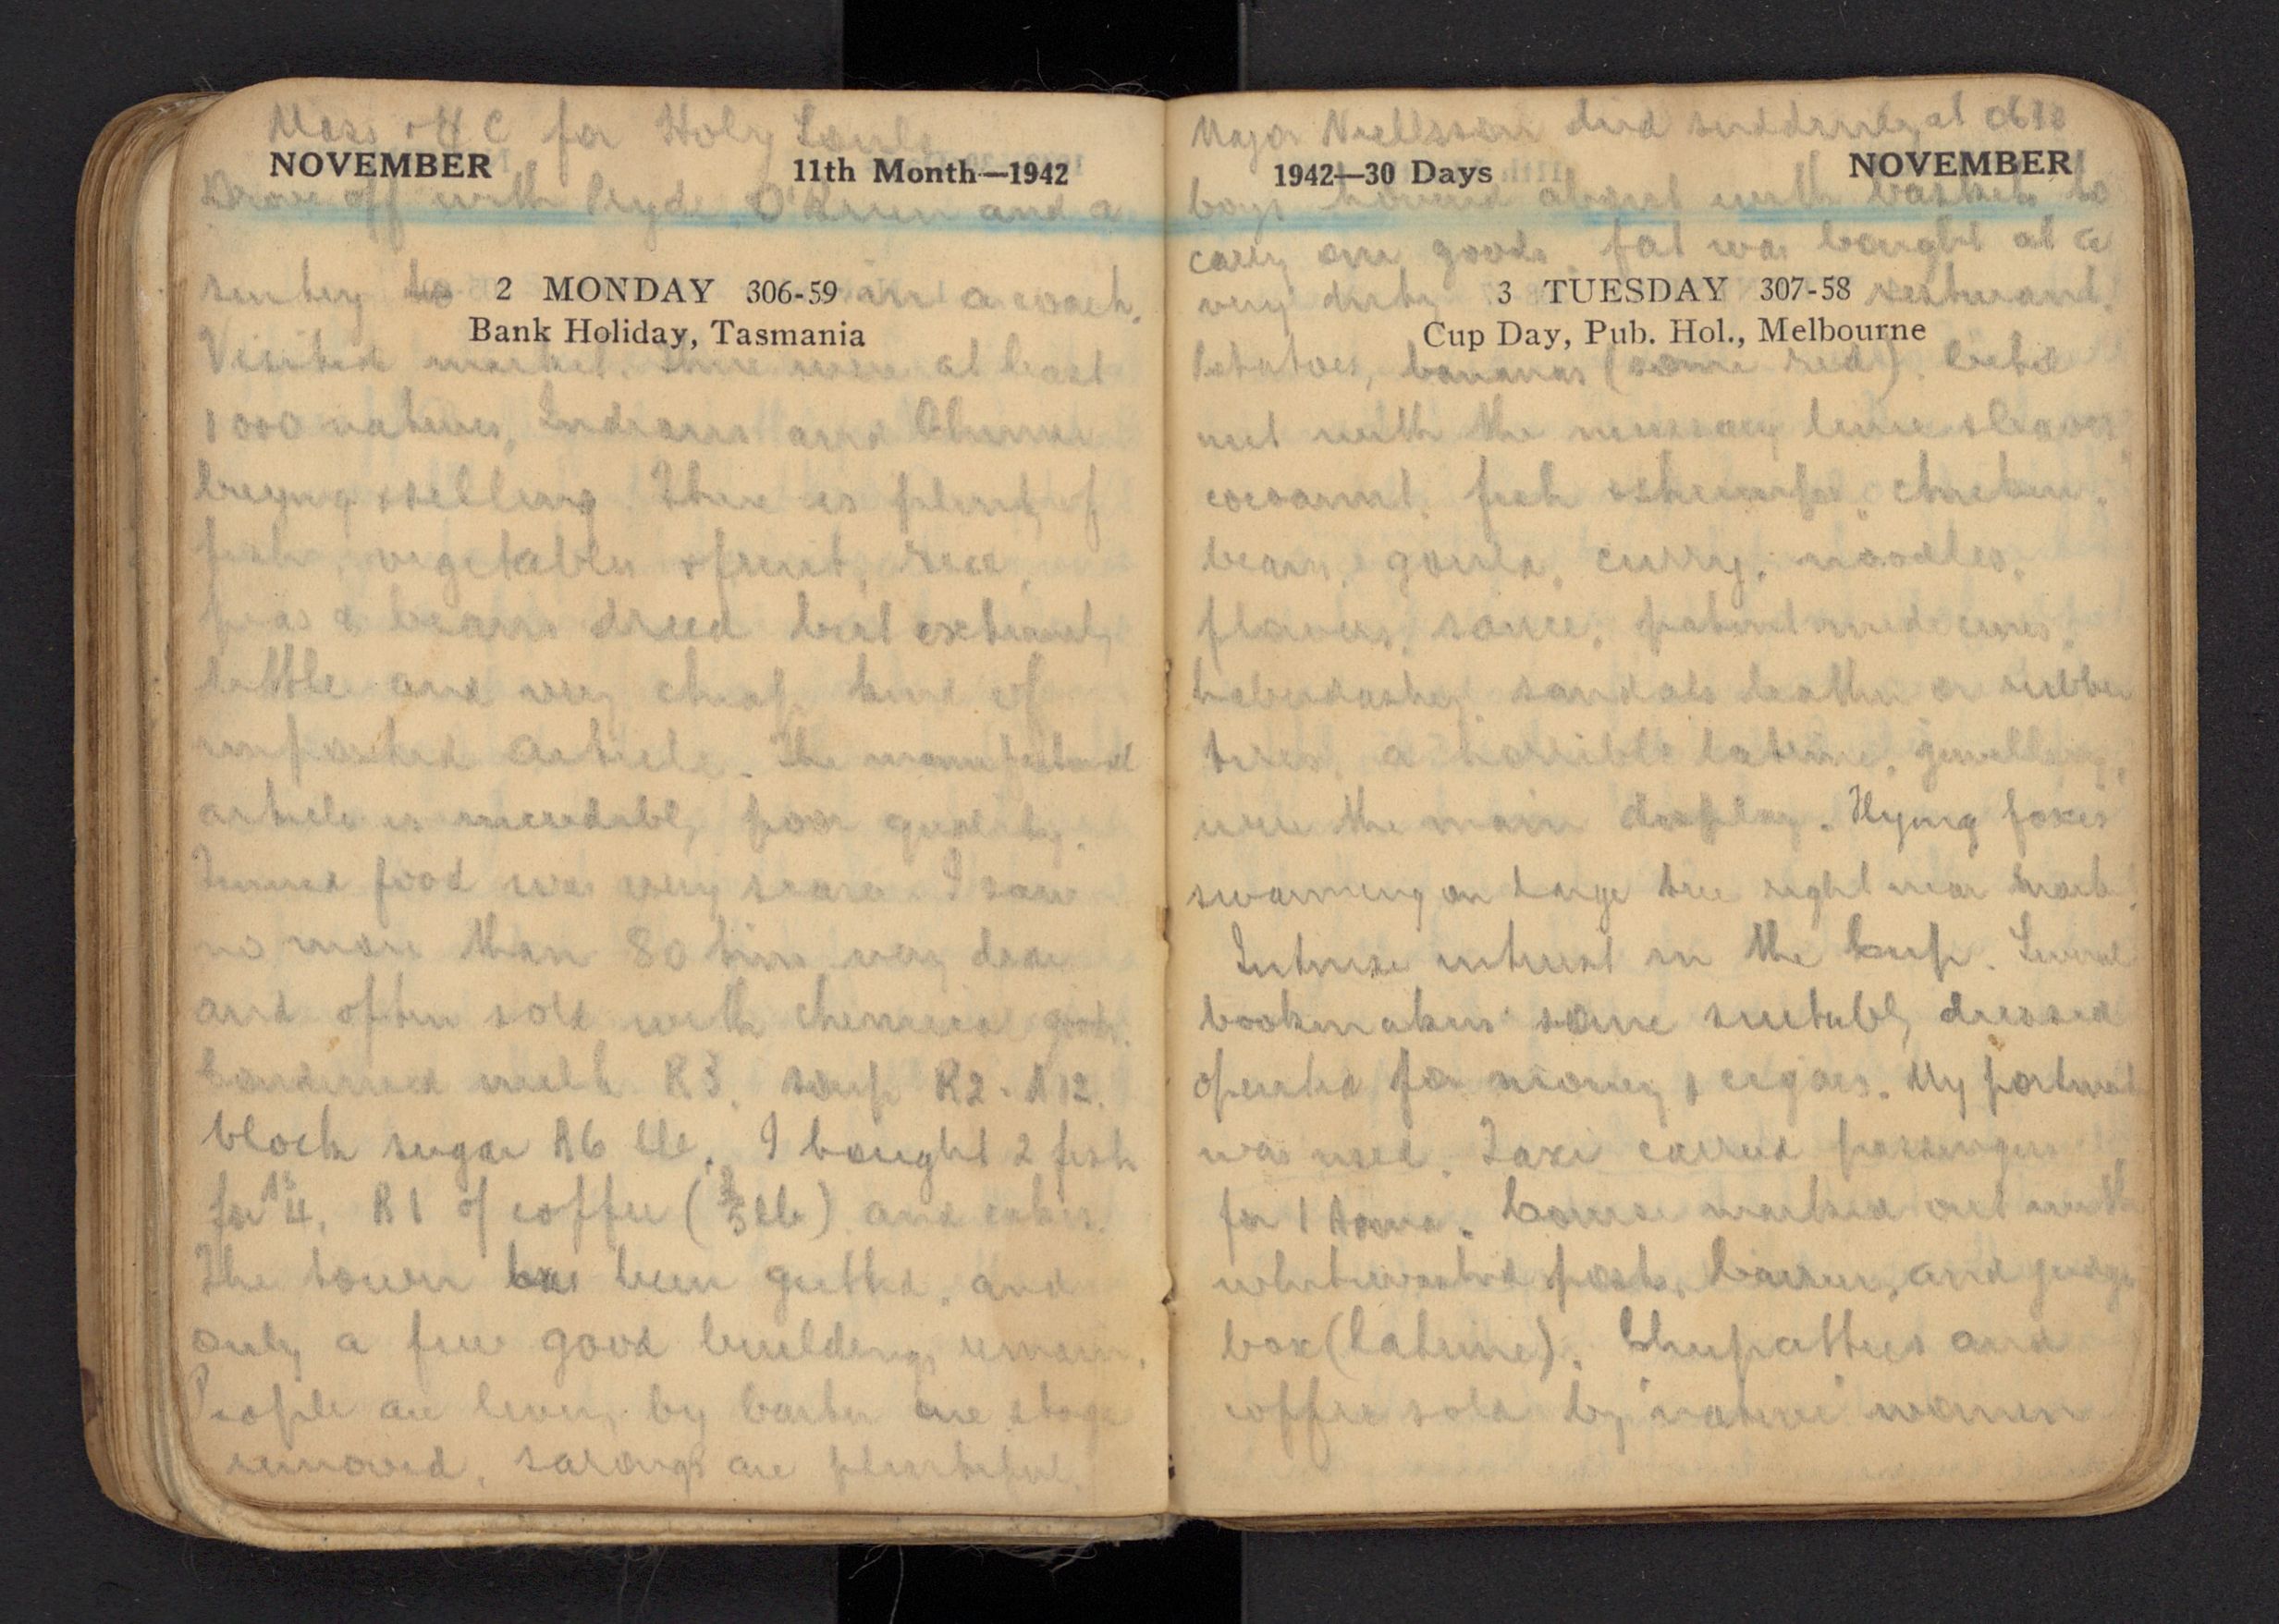 Mass & H C for Holy Souls
NOVEMBER 11th Month—1942
Drove off with Pryde, O'Brien and a
sentry to 2 MONDAY 306-59 in a coach.
Bank Holiday, Tasmania
Visited market. There were at least
1000 natives, Indians and Chinese
buying & selling. There is plenty of
fish, vegetables & fruit, rice,
peas & beans dried but extremely
little and very cheap kind of
imported article. The manufactured
article is incredibly poor quality.
Tinned food was very scarce. I saw
no more than 80 tins very dear
and often sold with chemical goods.
Condensed milk R3, soup R2-A12.
block sugar A6 lb. I bought 2 fish
for As 4, R1 of coffee (3/5 lb) and cakes.
The town has been gutted, and
only a few good buildings remain.
People are living by barter one stage
removed, sarongs are plentiful.
Major Niellsson died suddenly at 0610
1942—30 Days NOVEMBER
boys hovered about with baskets to
carry one goods. fat was bought at a
very dirty 3 TUESDAY 307-58 resturant.
Cup Day, Pub. Hol., Melbourne
Potatoes, bananas (some red). betel
nut with the necessary lime & leaves
cocoanut, fish & shrimps, chicken,
beans, gourds, curry, noodles,
flavours, sauce, patent medicines,
haberdashery sandals leather or rubber
tires, a horrible latrine, jewellery,
were the main display. Flying foxes
swarming on large tree right near mark.
Intense interest in the Cup. Several
bookmakers some suitably dressed
operated for money & cigars. My portwat
was used. Taxi carried passengers
for 1 Anna. Course marked out with
whitewashed posts, barrier, and judge
box (latrine). Chupatties and
coffee sold by 'native' women